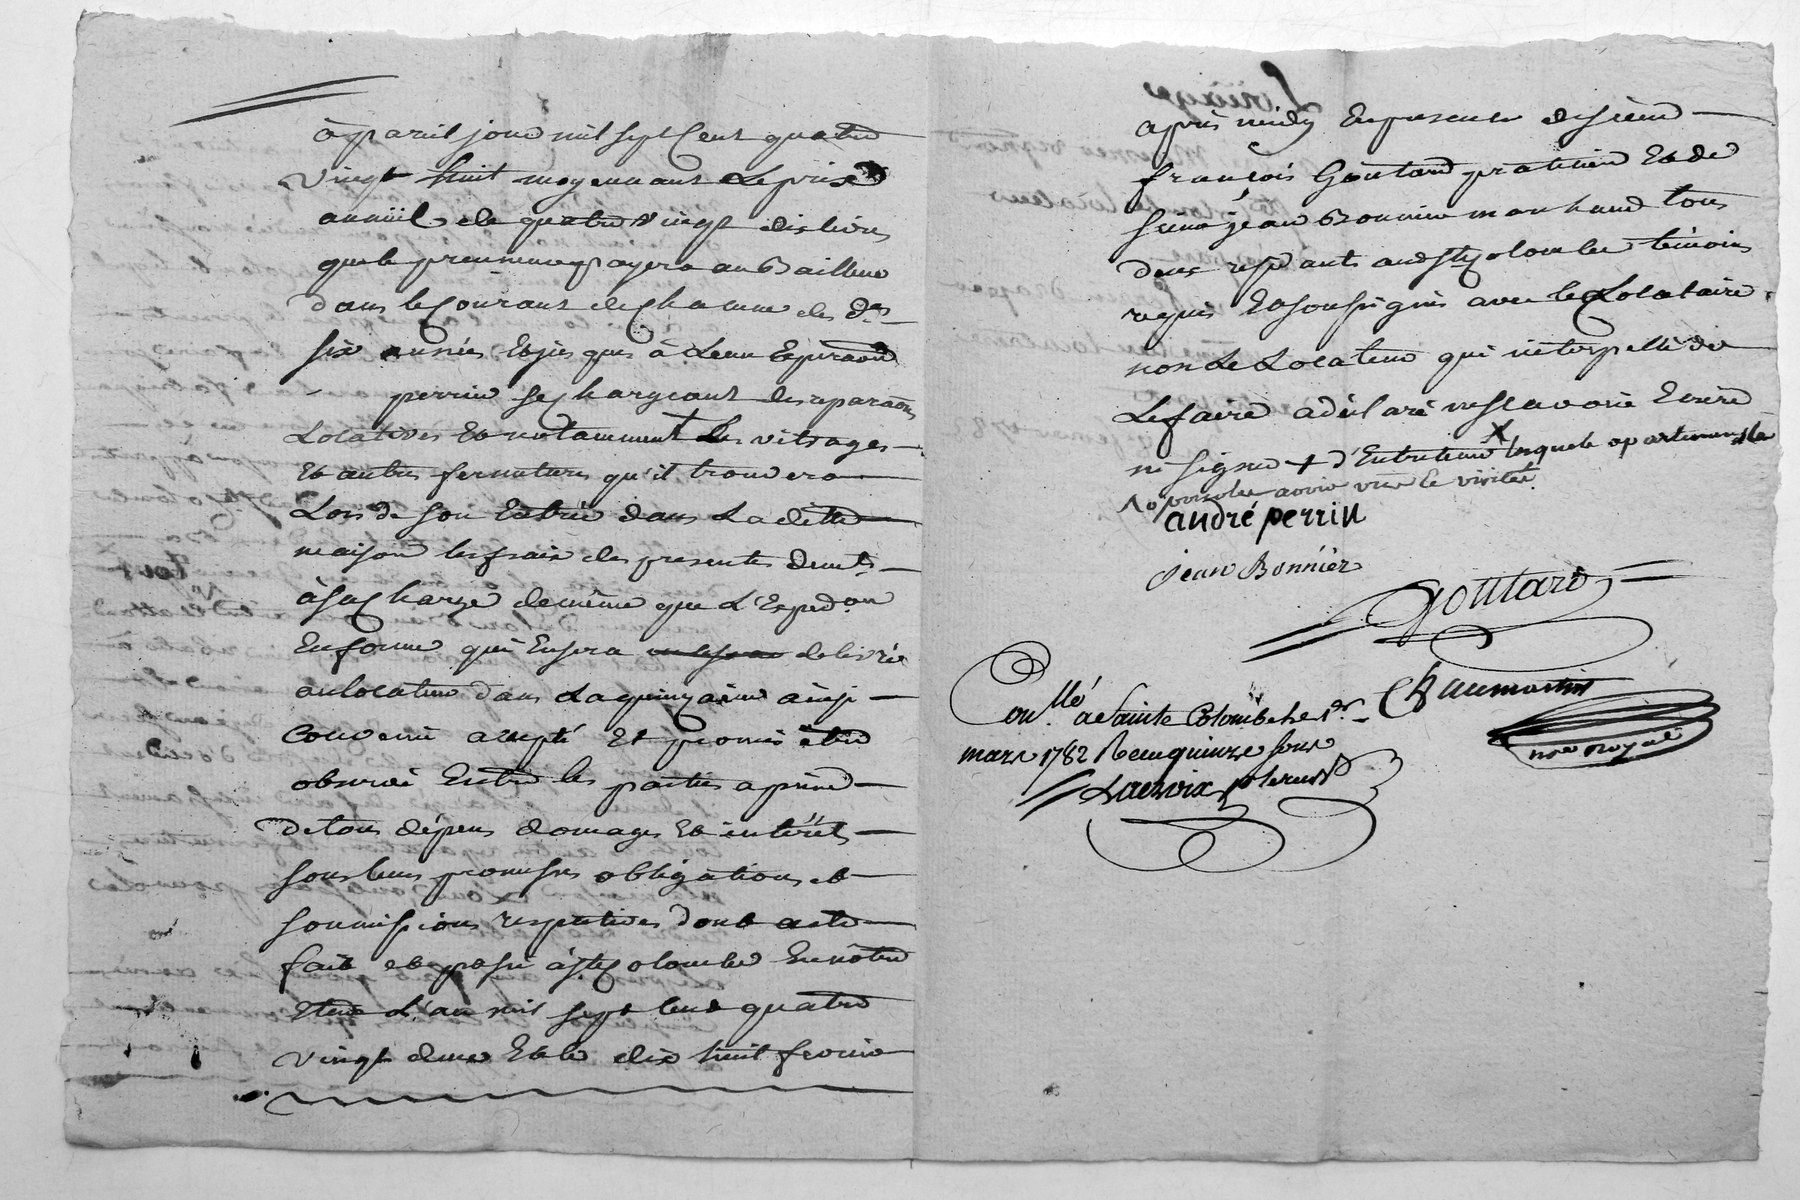 à pareil jour mil sept cent quatre
vingt huit moyennant le prix
annuel de quatre vingt dix livres
que le preneur payera au Bailleur
dans le courant de chacune des d.es
six années et jusques à leur Expiraon
perrin se chargeant des reparaons
Locatives et notamment les vitrages
Et autres fermetures qu'il trouvera
Lors de son Entrée dans La ditte
maison les frais des presentes seront
à sa charge de même que L'Expedon
En forme qui En sera delivrée
au locateur dans La quinzaine ainsi
convenu accepté Et promis être
observé Entre les parties a peine
De tous dépens domages Et intérêts
sous leurs promesses obligations et
soumissions respectives dont acte
fait et passé à Ste Colombe En notre
Etude L'an mil sept cent quatre
vingt deux Et le dix huit fevrier
après midy En presence de sieur
françois Goutard praticien Et de
sieur jean Bonnier marchand tous
deux resd.ants aud Ste Colombe témoins
requis Et soussignés avec le Locataire
non Le Locateur qui interpellé de
Le faire a déclaré ne sçavoir Ecrire
ni signer + d'Entretenir lesquels apartements la
pour les avoir vus et visités
andré perrin
jean Bonnier
Goutard
Chaumartin
no.re Royal
Con.llé a Sainte Colombe le 1.er
mars 1782 Reçu quinze sous
Lacroix